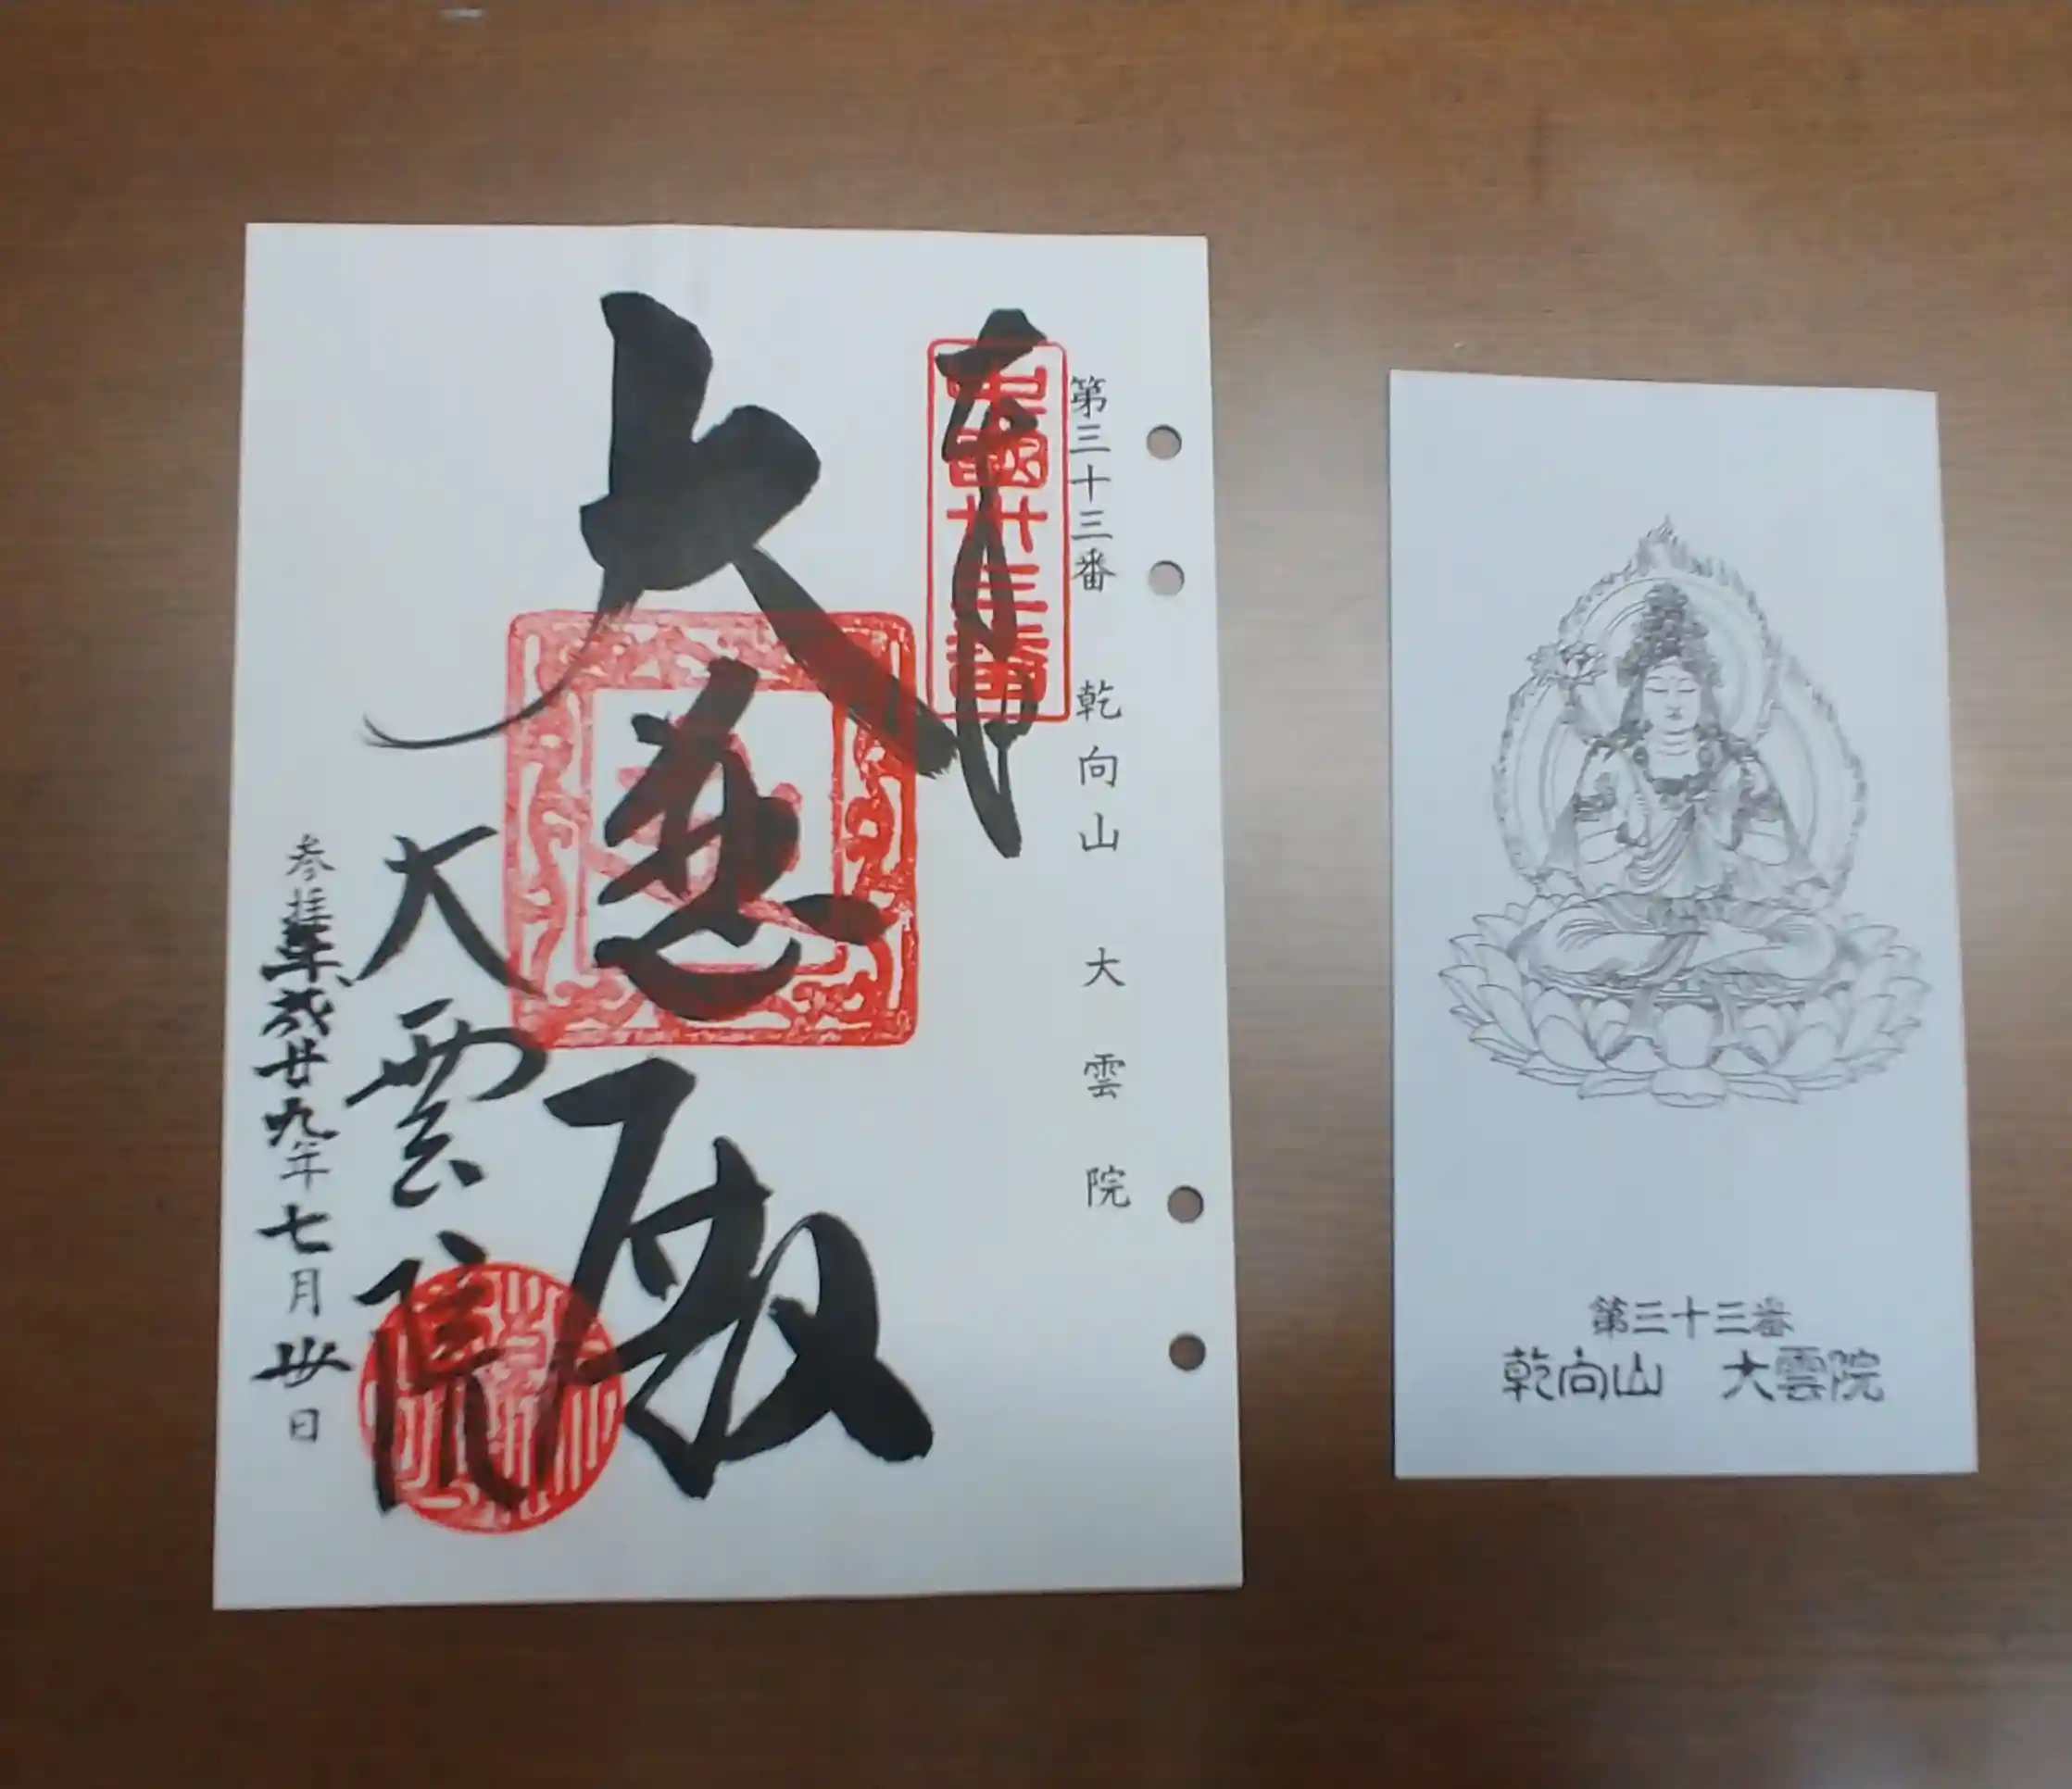 第三十三番 乾向山 大雲院
奉拝
中國卅三番
大悲殿
大雲院
参拝 平成廿九年七月卅日
第三十三番
乾向山 大雲院